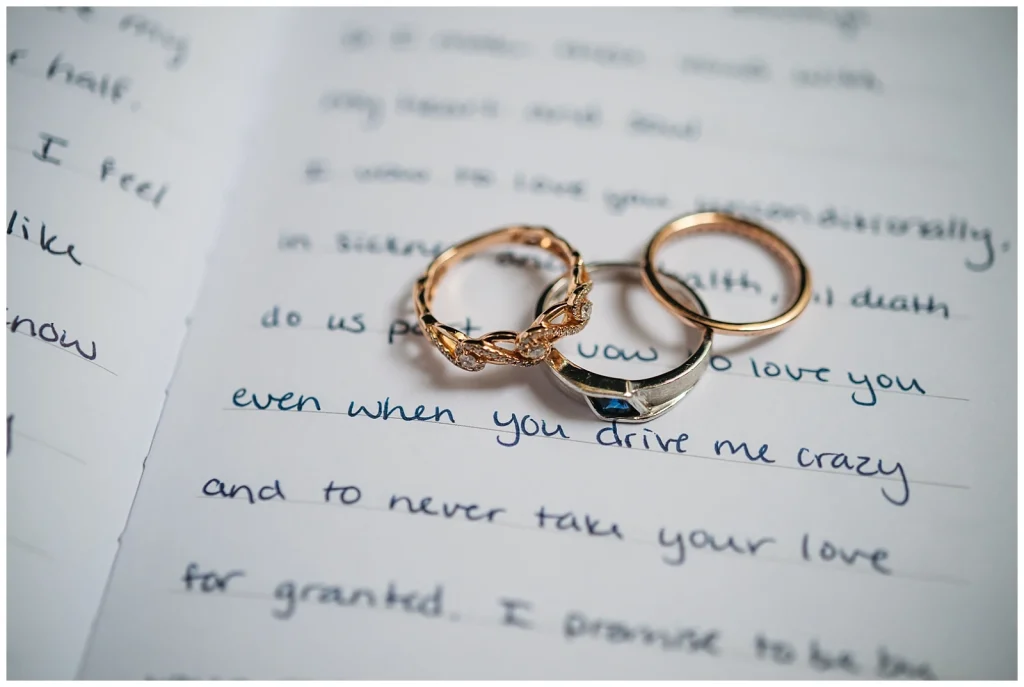 my
half.
I feel
like
now
my heart and soul
I vow to love you unconditionally,
in sickness and health, death
do us part vow to love you
even when you drive me crazy
and to never take your love
for granted. I promise to be